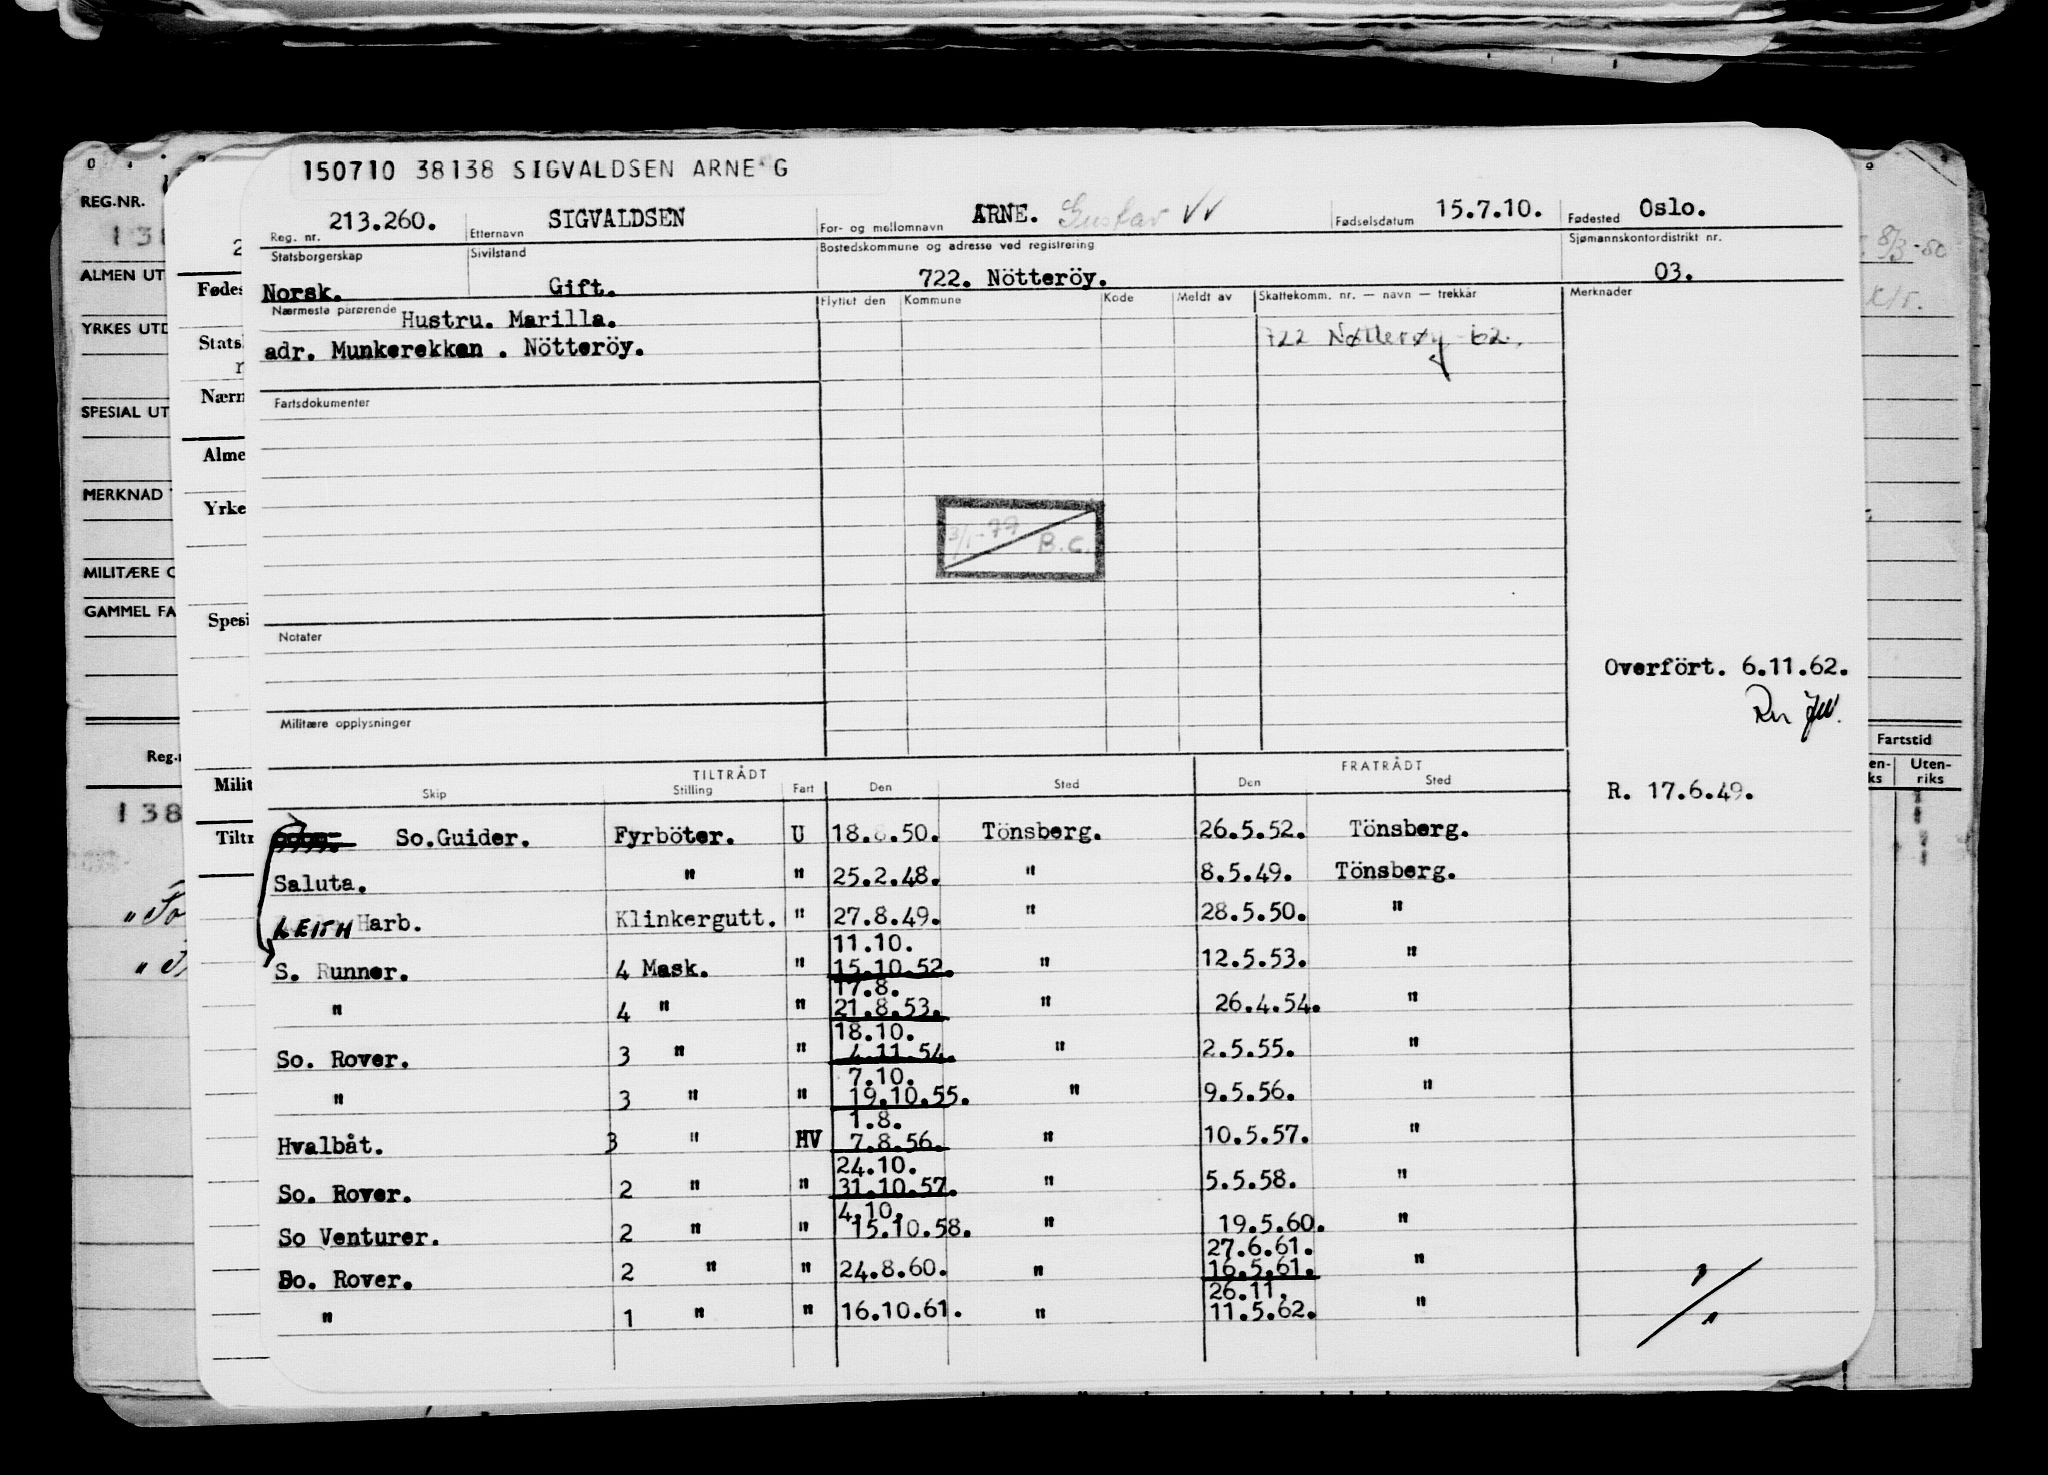 150710 38138 SIGVALDSEN ARNE G
Reg. nr. 213.260. Etternavn SIGVALDSEN For- og mellomnavn ARNE. Gustav Fødselsdatum 15.7.10. Fødested Oslo.
Statsborgerskap Norsk. Sivilstand Gift. Bostedskommune og adresse ved registrering 722. Nötteröy. Sjømannskontordistrikt nr. 03.
Nærmeste pårørende Hustru. Marilla. Flyttet den Kommune Kode Meldt av Skattekomm. nr. — navn — trekkår Merknader
adr. Munkerekken . Nötteröy. 722 Nøtterøy 62.
Fartsdokumenter
3/1-79 B.C.
Notater
Overfört. 6.11.62.
Militære opplysninger
TILTRÅDT FRATRÅDT
Skip Stilling Fart Den Sted Den Sted
R. 17.6.49.
So.Guider. Fyrböter. U 18.8.50. Tönsberg. 26.5.52. Tönsberg.
Saluta. " " 25.2.48. " 8.5.49. Tönsberg.
LEITH Harb. Klinkergutt. " 27.8.49. " 28.5.50. "
11.10.
S. Runner. 4 Mask. " 15.10.52. " 12.5.53. "
17.8.
" 4 " " 21.8.53. " 26.4.54. "
18.10.
So. Rover. 3 " " 4.11.54. " 2.5.55. "
7.10.
" 3 " " 19.10.55. " 9.5.56. "
1.8.
Hvalbåt. 3 " HV 7.8.56. " 10.5.57. "
24.10.
So. Rover. 2 " " 31.10.57. " 5.5.58. "
4.10.
So Venturer. 2 " " 15.10.58. " 19.5.60. "
27.6.61.
So. Rover. 2 " " 24.8.60. " 16.5.61. "
26.11.
" 1 " " 16.10.61. " 11.5.62. "
REG.NR.
138
ALMEN UT
YRKES UTD
SPESIAL UT
MERKNAD
MILITÆRE O
GAMMEL FA
Reg.n
138
Fødes
Stats
Nærn
Alme
Yrke
Spesi
Milit
Tiltr
8/3-80
Fartstid
en-
ks
Uten-
riks